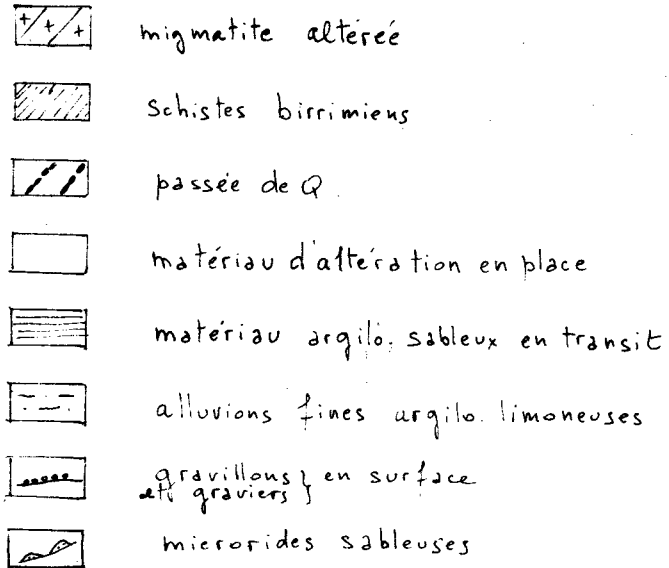 migmatite altérée
Schistes birrimiens
passée de Q
matériau d'altération en place
matériau argilo. sableux en transit
alluvions fines argilo. limoneuses
gravillons } en surface
et graviers }
microrides sableuses